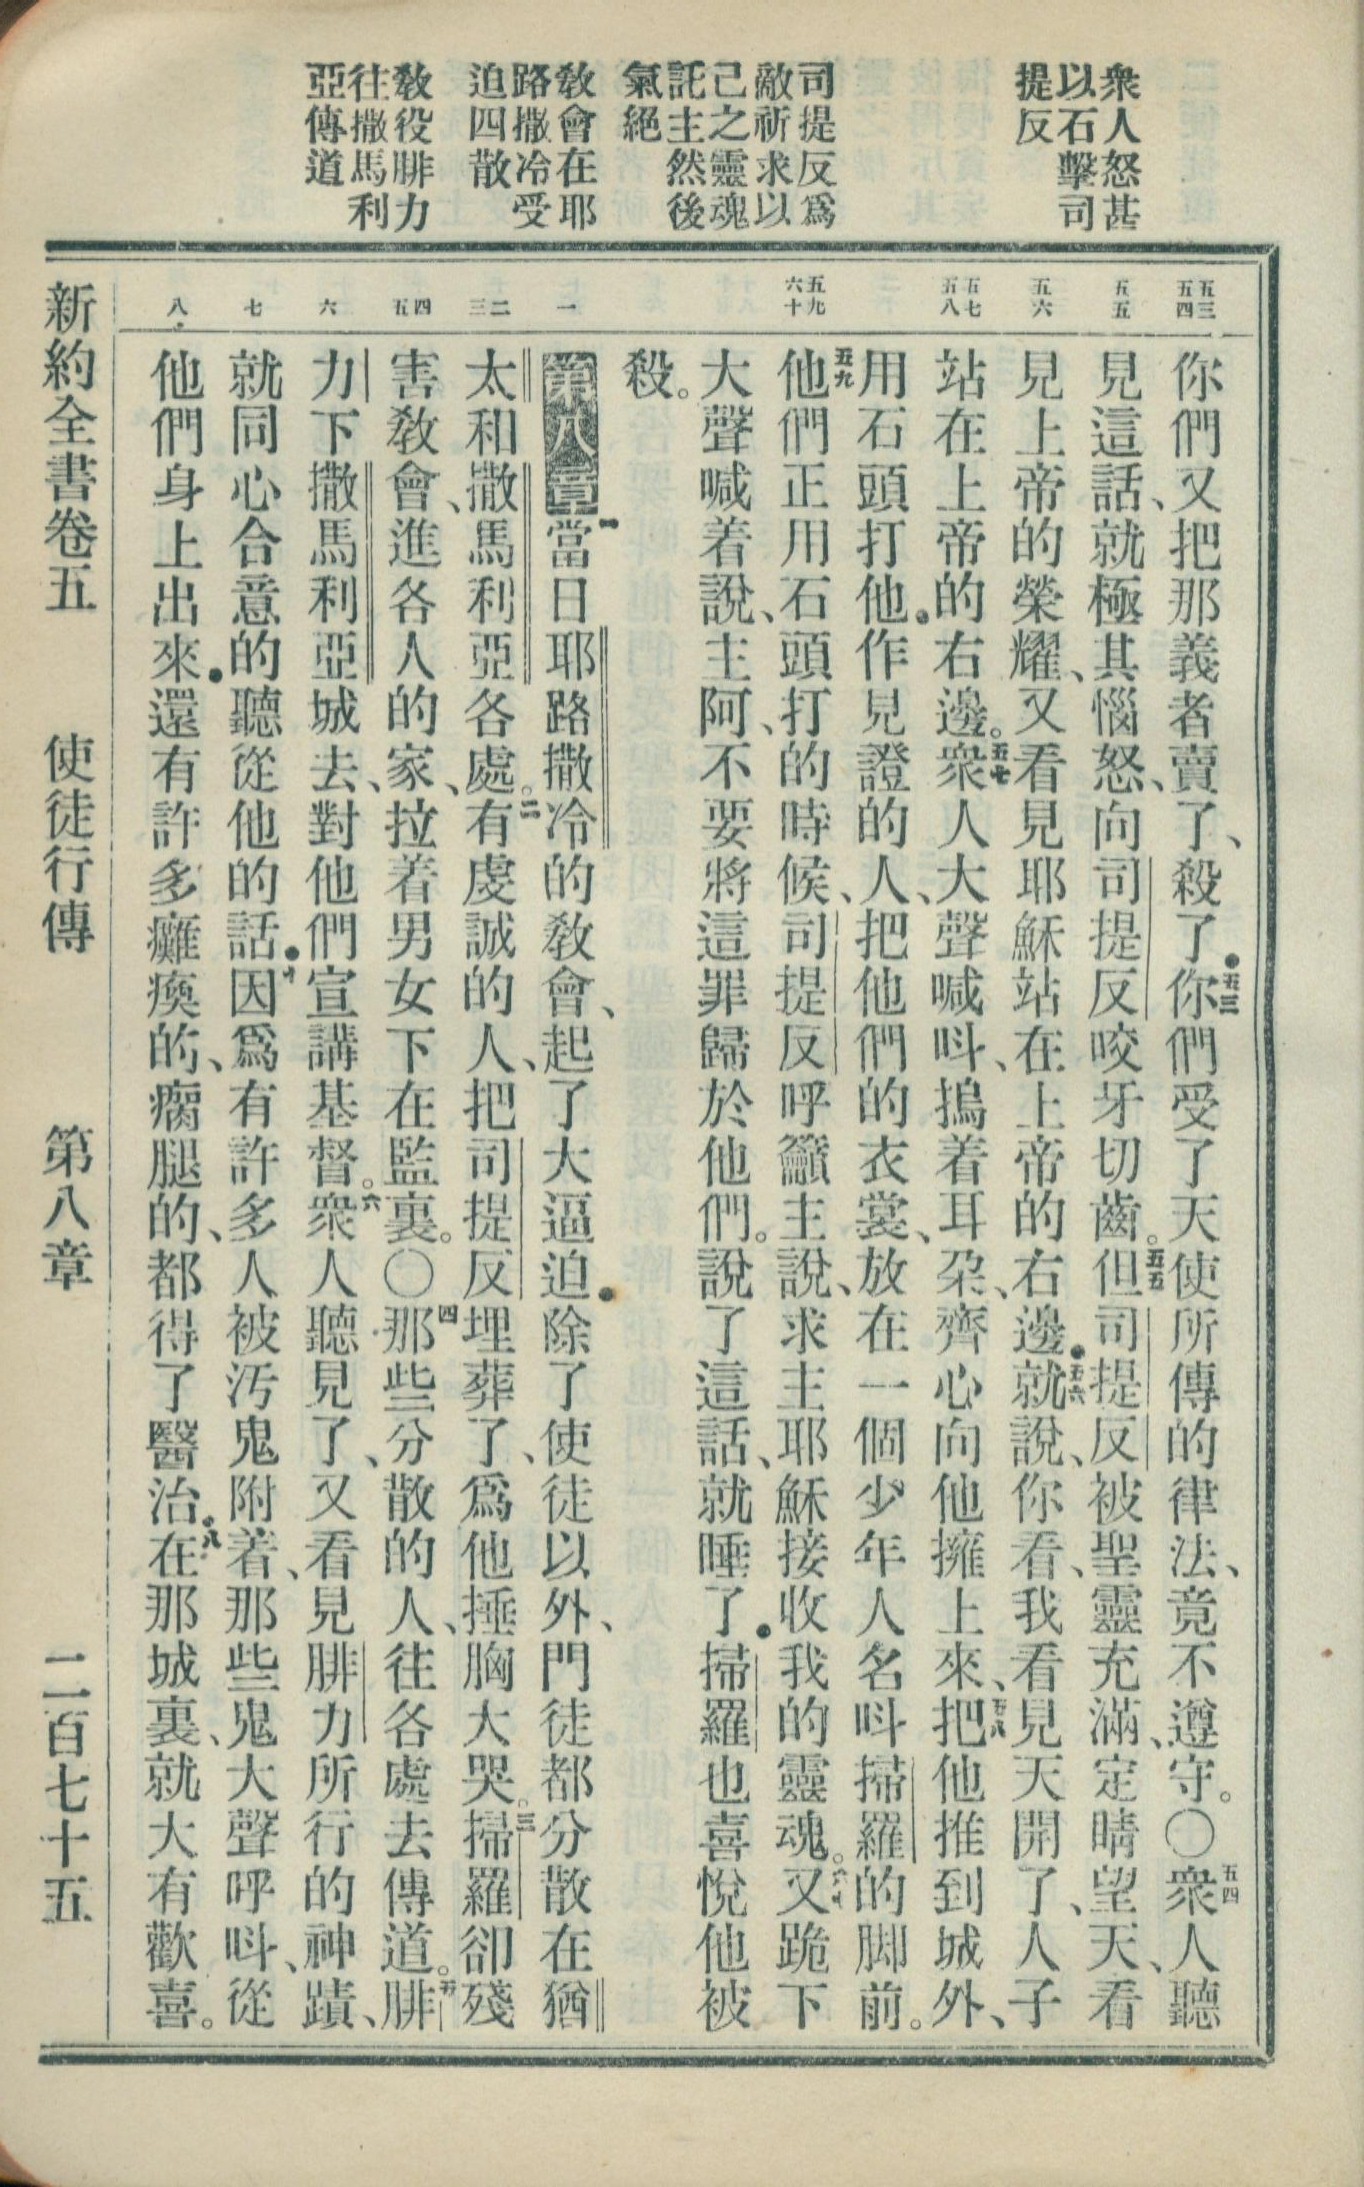 衆人怒甚
以石擊司
提反
司提反爲
敵祈求以
己之靈魂
託主然後
氣絕
教會在耶
路撒冷受
迫四散
教役腓力
往撒馬利
亞傳道
五三
五四
五五
五六
五七
五八
五九
六十
一
二
三
四
五
六
七
八
你們又把那義者賣了、殺了●五三你們受了天使所傳的律法、竟不遵守。〇五四衆人聽
見這話、就極其惱怒、向司提反咬牙切齒。五五但司提反被聖靈充滿、定睛望天、看
見上帝的榮耀、又看見耶穌站在上帝的右邊●五六就說、你看、我看見天開了、人子
站在上帝的右邊。五七衆人大聲喊呌、摀着耳朶、齊心向他擁上來、五八把他推到城外、
用石頭打他●作見證的人、把他們的衣裳、放在一個少年人名呌掃羅的脚前。
五九他們正用石頭打的時候、司提反呼籲主說、求主耶穌接收我的靈魂。六十又跪下
大聲喊着說、主阿、不要將這罪歸於他們。說了這話、就睡了●掃羅也喜悅他被
殺。
第八章一當日耶路撒冷的教會、起了大逼迫●除了使徒以外、門徒都分散在猶
太和撒馬利亞各處。二有虔誠的人、把司提反埋葬了、爲他捶胸大哭。三掃羅卻殘
害教會、進各人的家、拉着男女下在監裏。〇四那些分散的人、往各處去傳道。五腓
力下撒馬利亞城去、對他們宣講基督。六衆人聽見了、又看見腓力所行的神蹟、
就同心合意的聽從他的話●七因爲有許多人被汚鬼附着、那些鬼大聲呼呌、從
他們身上出來●還有許多癱瘓的、瘸腿的、都得了醫治●八在那城裏、就大有歡喜。
新約全書卷五 使徒行傳 第八章 二百七十五